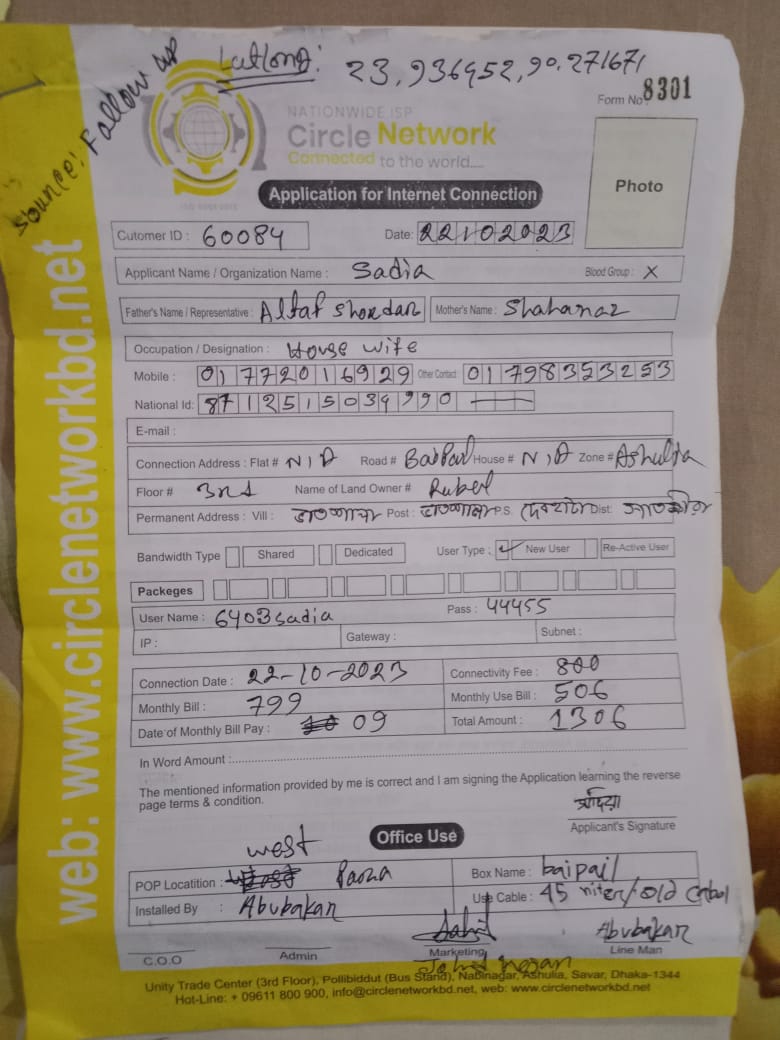 Latlong: 23.936952,90.271671
Source: Follow up
Form No: 8301
NATIONWIDE ISP
Circle Network
Connected to the world....
Application for Internet Connection
Photo
Cutomer ID : 60084 Date: 22102023
Applicant Name / Organization Name : Sadia Blood Group : X
Father's Name / Representative : Altaf Mother's Name : Shahanaz
Occupation / Designation : House wife
Mobile : 01772016929 Other Contact 01798353253
National Id: 8712515039990
E-mail :
Connection Address : Flat # N/A Road # House # N/A Zone # Ashulia
Floor # 3rd Name of Land Owner # Rubel
Permanent Address : Vill : Post : P.S. Dist:
Bandwidth Type Shared Dedicated User Type : ✓ New User Re-Active User
Packeges
User Name : 6403sadia Pass : 44455
IP : Gateway : Subnet :
Connection Date : 22-10-2023 Connectivity Fee : 800
Monthly Bill : 799 Monthly Use Bill : 506
Date of Monthly Bill Pay : 09 Total Amount : 1306
In Word Amount :
The mentioned information provided by me is correct and I am signing the Application learning the reverse
page terms & condition.
Applicant's Signature
Office Use
west
POP Locatition : Box Name : baipail
Installed By : Abubakar Use Cable : 45 old
Abubakar
C.O.O Admin Marketing Line Man
Unity Trade Center (3rd Floor), Pollibiddut (Bus Stand), Nabinagar, Ashulia, Savar, Dhaka-1344
Hot-Line: + 09611 800 900, info@circlenetworkbd.net, web: www.circlenetworkbd.net
web: www.circlenetworkbd.net